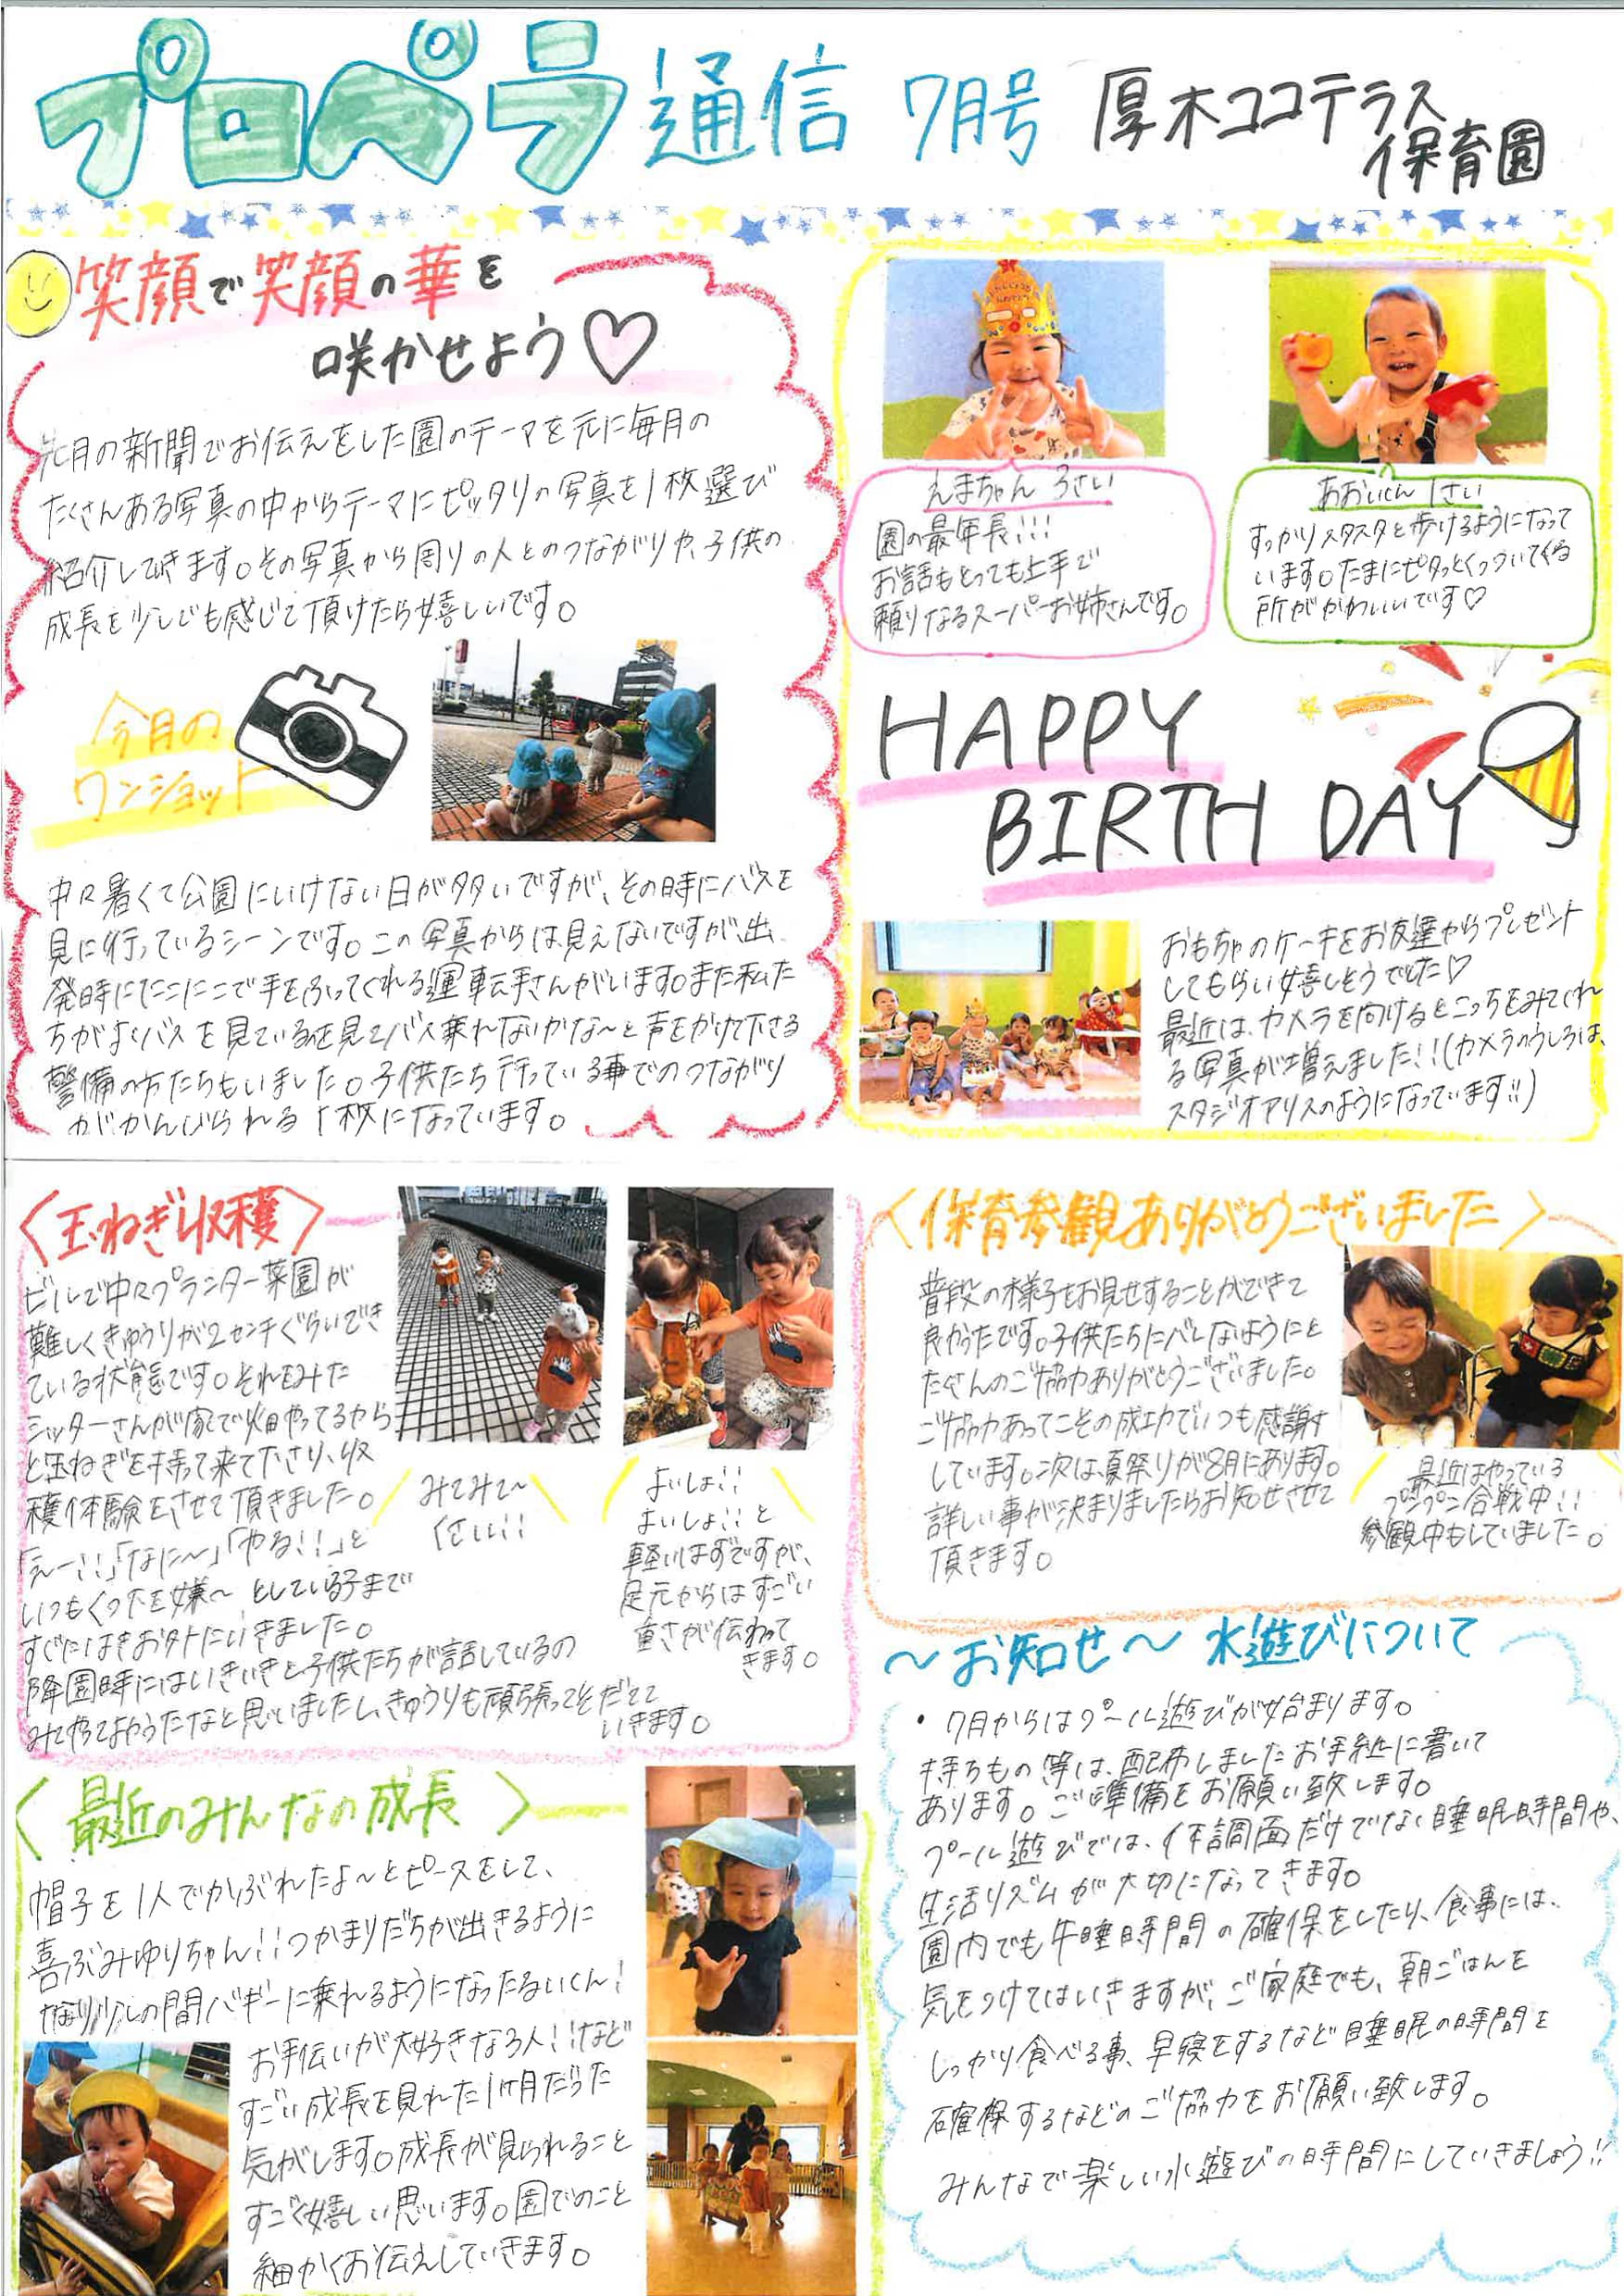 プロペラ通信 7月号 厚木ココテラス
保育園
笑顔で笑顔の華を
咲かせよう♡
先月の新聞でお伝えをした園のテーマを元に毎月の
たくさんある写真の中からテーマにピッタリの写真を1枚選び
紹介していきます。その写真から周りの人とのつながりや、子供の
成長を少しでも感じて頂けたら嬉しいです。
今月の
ワンショット
中々暑くて公園にいけない日が多いですが、その時にバスを
見に行っているシーンです。この写真からは見えないですが、出
発時にニこにこで手をふってくれる運転手さんがいます。また私た
ちがよくバスを見ているを見てバス乗れないかな〜と声をかけて下さる
警備の方たちもいました。子供たち行っている事でのつながり
がかんじられる1枚になっています。
えまちゃん 3さい
園の最年長!!!
お話もとっても上手で
頼りなるスーパーお姉さんです。
あおいくん 1さい
すっかりスタスタと歩けるようになって
います。たまにピタっとくっついてくる
所がかわいいです♡
HAPPY
BIRTH DAY
おもちゃのケーキをお友達からプレゼント
してもらい嬉しそうでした♡
最近は、カメラを向けるとこっちをみてくれ
る写真が増えました!!(カメラのうしろは、
スタジオアリスのようになっています!!)
〈玉ねぎ収穫〉
ビルで中々プランター菜園が
難しくきゅうりが2センチぐらいでき
ている状態です。それをみた
シッターさんが家で畑やってるから
と玉ねぎを持って来て下さり、収
穫体験をさせて頂きました。
「えー!!」「なに〜」「やる!!」と
いつもくつ下を嫌〜としている子まで
すぐにはきお外にいきました。
降園時にはいきいきと子供たちが話しているの
みてやってよかったなと思いましたし、きゅうりも頑張ってそだてて
いきます。
みてみて〜
くさい!!
よいしょ!!
よいしょ!!と
軽いはずですが、
足元からはすごい
重さが伝わって
きます。
〈保育参観ありがとうございました〉
普段の様子をお見せすることができて
良かったです。子供たちにバレないようにと
たくさんのご協力ありがとうございました。
ご協力あってこその成功でいつも感謝
しています。次は、夏祭りが8月にあります。
詳しい事が決まりましたらお知らせさせて
頂きます。
最近はやっている
プンプン合戦中!!
参観中もしていました。
〜お知せ〜 水遊びについて
・7月からはプール遊びが始まります。
持ちもの等は、配布しましたお手紙に書いて
あります。ご準備をお願い致します。
プール遊びでは、体調面だけでなく睡眠時間や、
生活リズムが大切になってきます。
園内でも午睡時間の確保をしたり、食事には、
気をつけてはいきますが、ご家庭でも、朝ごはんを
しっかり食べる事、早寝をするなど睡眠の時間を
確保するなどのご協力をお願い致します。
みんなで楽しい水遊びの時間にしていきましょう!!
〈最近のみんなの成長〉
帽子を1人でかぶれたよ〜とピースをして、
喜ぶみゆりちゃん!!つかまりだちが出きるように
なり少しの間バギーに乗れるようになったるいくん!
お手伝いが大好きな3人!!など
すごい成長を見れた1ヶ月だった
気がします。成長が見られること
すごく嬉しい思います。園でのこと
細かくお伝えしていきます。